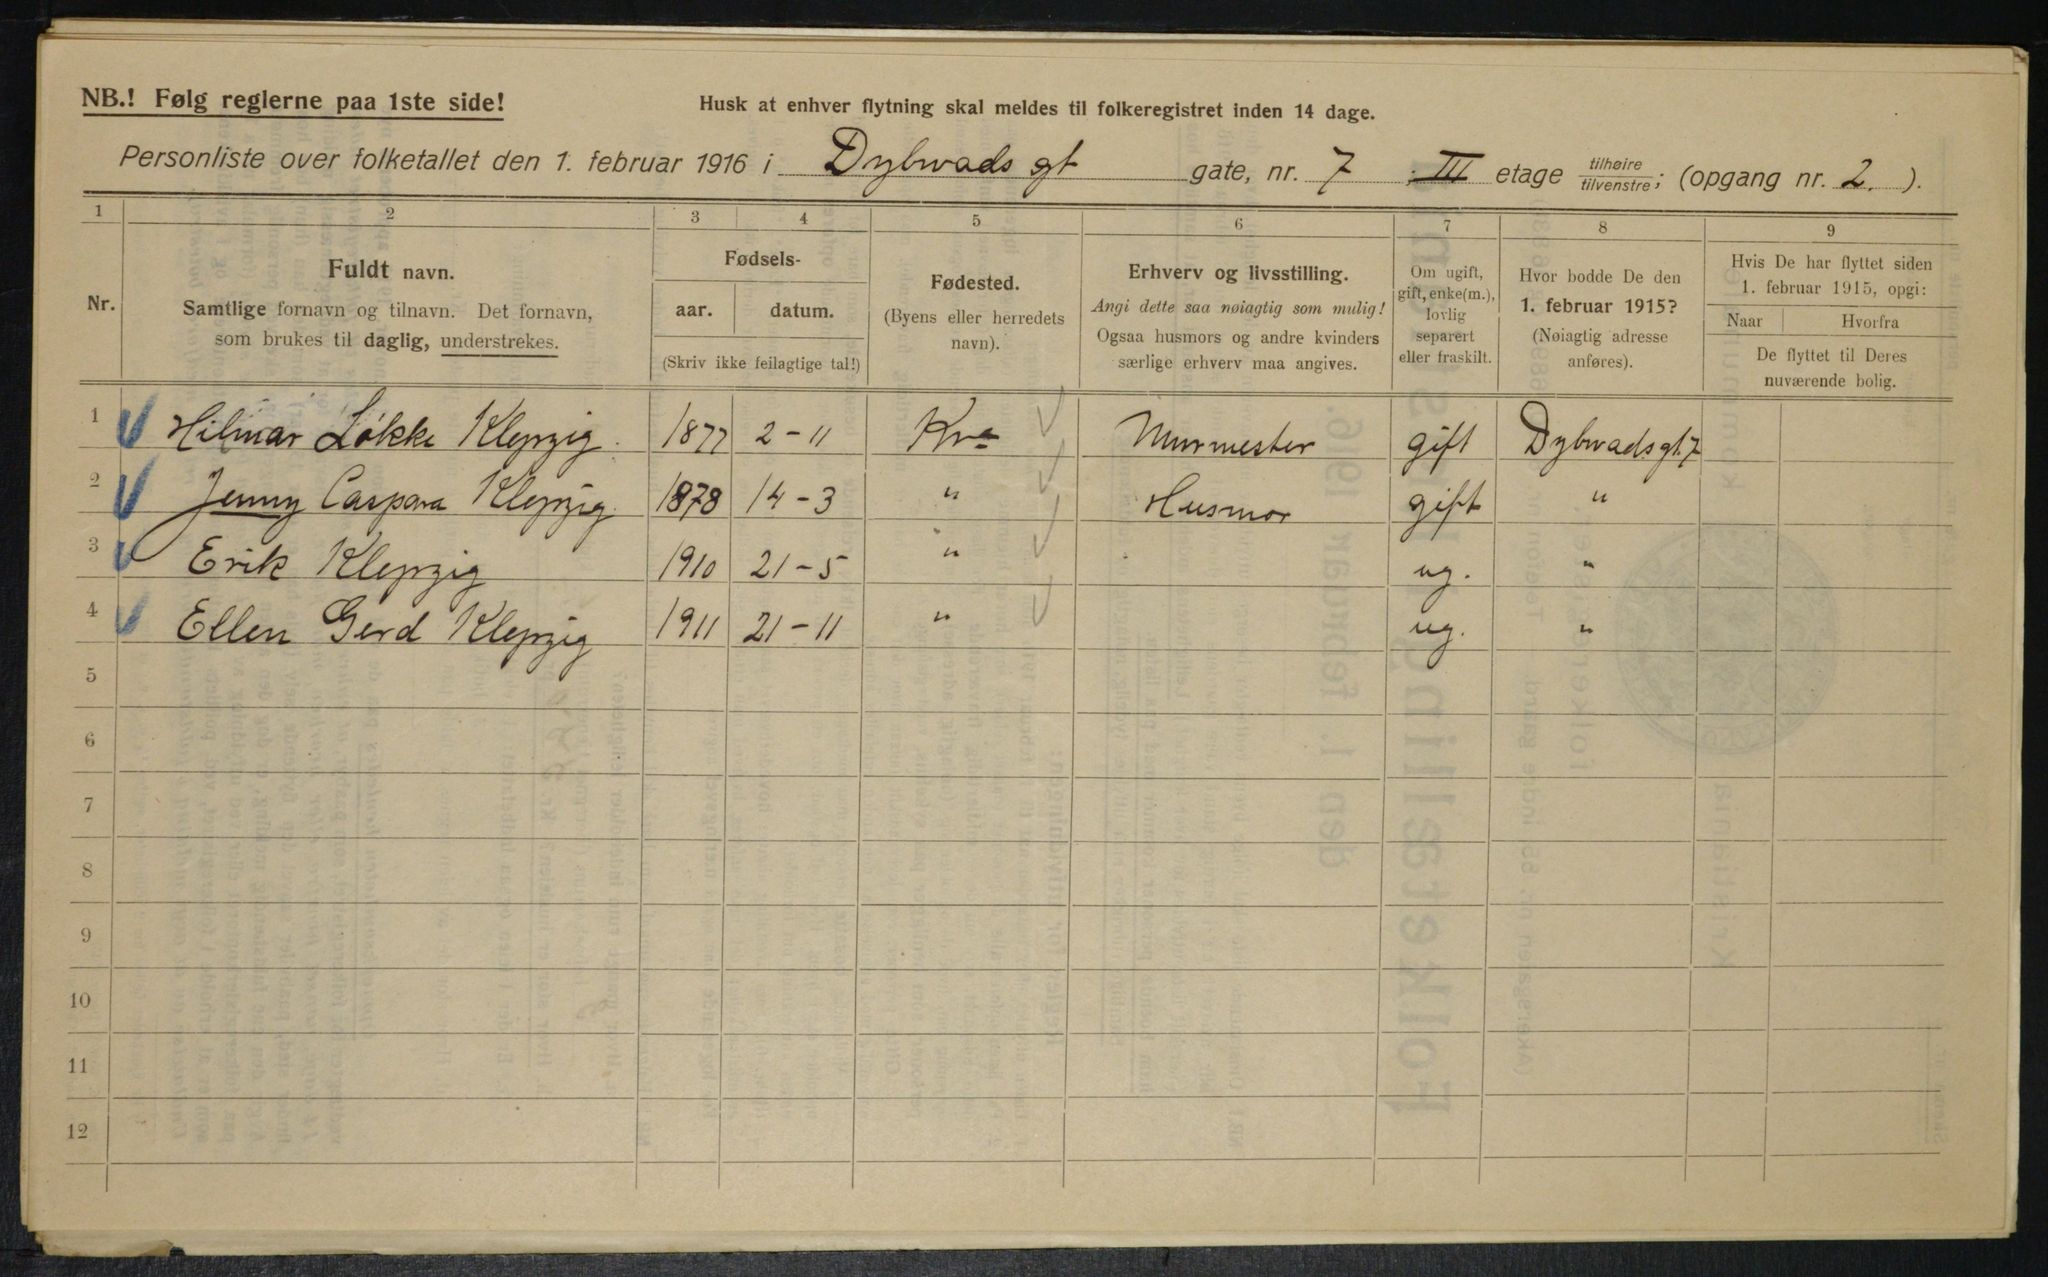 NB.! Følg reglerne paa 1ste side!
Husk at enhver flytning skal meldes til folkeregistret inden 14 dage.
Personliste over folketallet den 1. februar 1916 i Dybwads gt gate, nr. 7 ; III etage tilhøire/tilvenstre; (opgang nr. 2. ).
1 2 3 4 5 6 7 8 9
Nr.
Fuldt navn.
Samtlige fornavn og tilnavn. Det fornavn, som brukes til daglig, understrekes.
Fødsels-
aar. datum.
(Skriv ikke feilagtige tal!)
Fødested.
(Byens eller herredets navn).
Erhverv og livsstilling.
Angi dette saa nøiagtig som mulig!
Ogsaa husmors og andre kvinders særlige erhverv maa angives.
Om ugift, gift, enke(m.), lovlig separert eller fraskilt.
Hvor bodde De den 1. februar 1915?
(Nøiagtig adresse anføres).
Hvis De har flyttet siden 1. februar 1915, opgi:
Naar Hvorfra
De flyttet til Deres nuværende bolig.
1 Hilmar Løkke Klepzig. 1877 2-11 Kra Murmester gift Dybwadsgt. 7
2 Jenny Caspara Klepzig. 1878 14-3 " Husmor gift "
3 Erik Klepzig 1910 21-5 " ug. "
4 Ellen Gerd Klepzig 1911 21-11 " ug. "
5
6
7
8
9
10
11
12